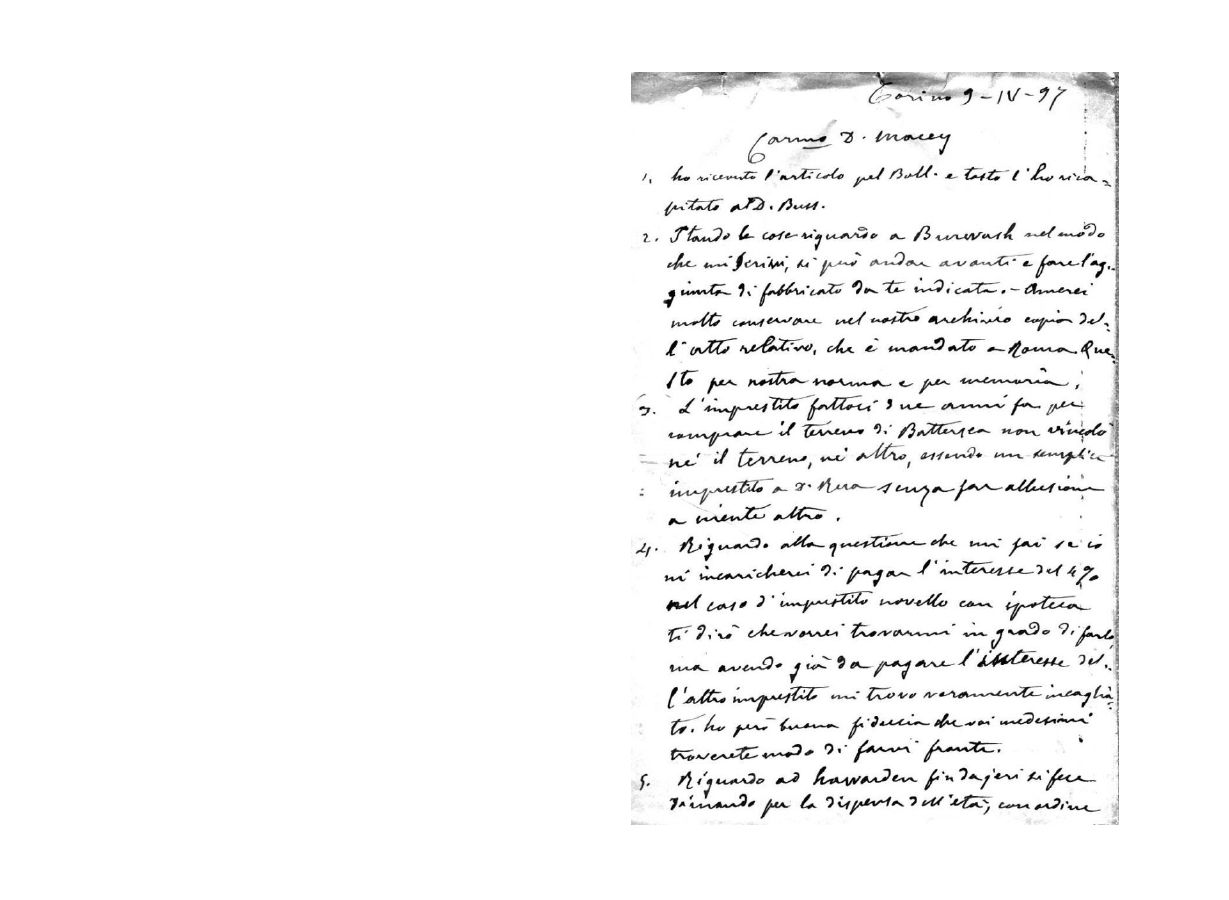 Torino 9-IV-97
Carmo D. Macey
1. ho ricevuto l'articolo pel Boll. e tosto l'ho rica=
pitato al D. Buss.
2. Stando le cose riguardo a Burwash nel modo
che mi scrivi, si può andar avanti e fare l'ag-
giunta di fabbricato da te indicata. - Amerei
molto conservare nel nostro archivio copia del-
l'atto relativo, che è mandato a Roma Que-
sto per nostra norma e per memoria;
3. L'imprestito fattoci due anni fa per
comprare il terreno di Battersea non vincolò
nè il terreno, nè altro, essendo un semplice
imprestito a D. Rua senza far allusione
a niente altro.
4. Riguardo alla questione che mi fai se io
mi incaricherei di pagar l'interesse del 4%
nel caso d'imprestito novello con ipoteca
ti dirò che vorrei trovarmi in grado di farlo,
ma avendo già da pagare l'interesse del-
l'altro imprestito mi trovo veramente incaglia-
to. ho però buona fiducia che voi medesimi
troverete modo di farvi fronte.
5. Riguardo ad hawarden fin da jeri si fece
domanda per la dispensa dell'età, con ordine